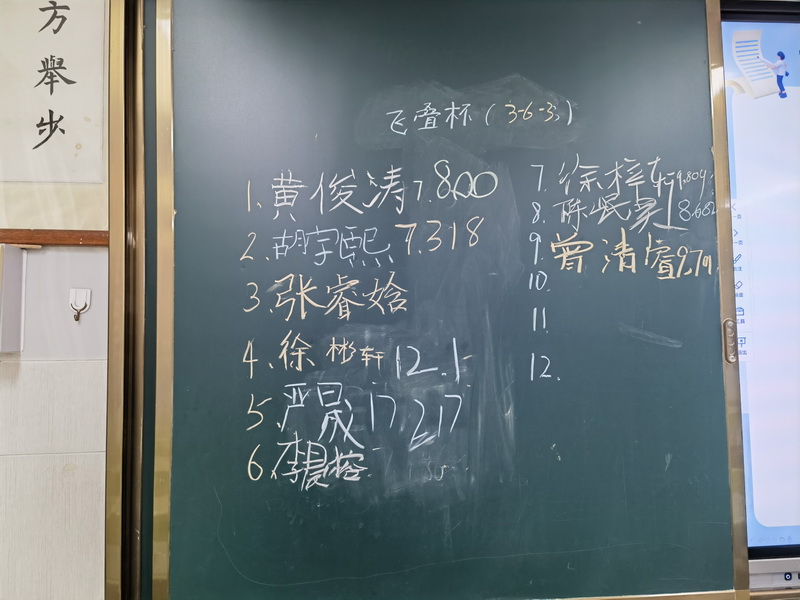 方
舉
步
飞叠杯（3-6-3）
1.黄俊涛7.800
2.胡宇熙7.318
3.张睿焓
4.徐彬轩12.1
5.严晟17 217
6.李晨榕
7.徐梓轩9.804
8.陈岷昊8.682
9.曾清睿9.701
10.
11.
12.